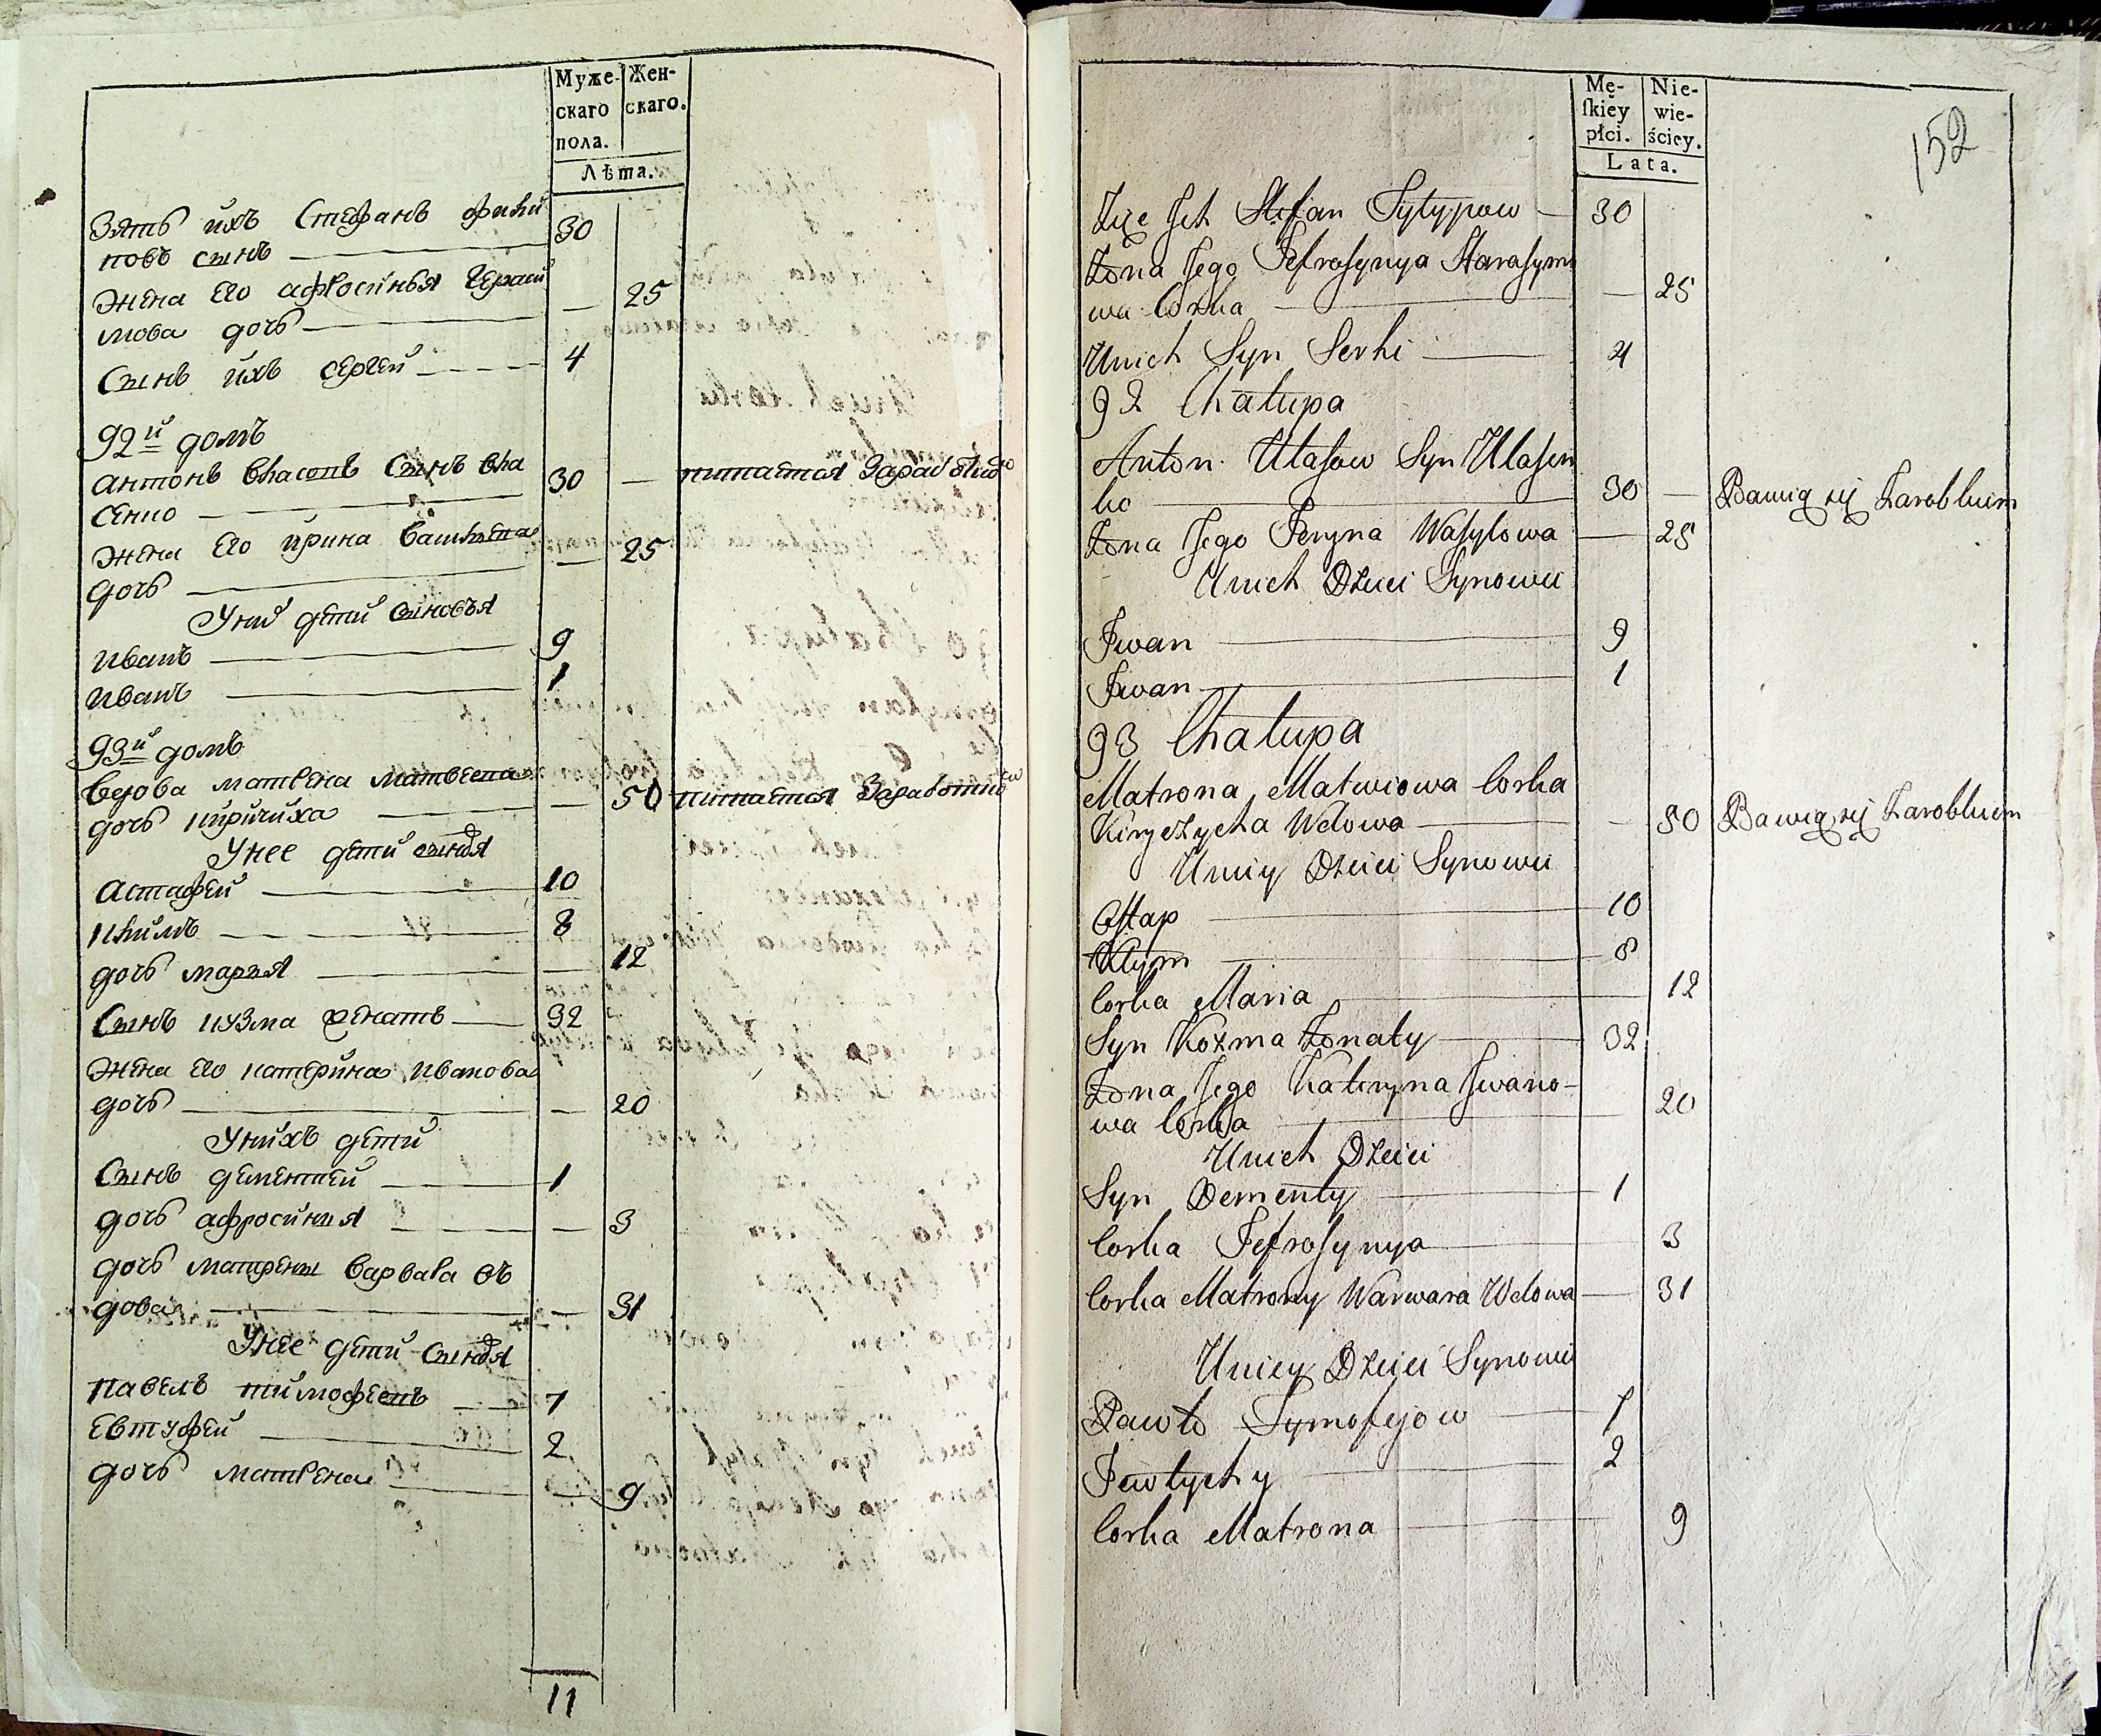 Муже-
скаго
пола.
Жен-
скаго.
Лѣта.
Зять ихъ Стефанъ Фили
повъ сынъ 30
жена его афросинья Гераси
мова дочь 25
Сынъ ихъ сергей 4
92й домъ
антонъ Власовъ Сынъ Вла
сенко 30 питается Заработко
жена Его ирина Васильева
дочь 25
Уних дети сыновья
иванъ 9
иванъ 1
93й домъ
вдова матрена матвеева
дочь киричиха 50 питается Заработко
Унее дети сыновя
астафей 10
климъ 8
дочь марья 12
Сынъ кузма женатъ 32
жена Его катерина иванова
дочь 20
Унихъ дети
Сынъ дементей 1
дочь афросинья 3
дочь матрены варвара въ
дова 31
Унее дети сыновя
павелъ тимофеевъ 7
Евтуфей 2
дочь матрена 9
11
Mę-
skiéy
płci.
Nie-
wie-
ściey.
Lata.
152
Zięc Jch Stefan Fyłypow 30
Żona Jego Jefrosynya Harasymo
wa Corka 25
Unich Syn Serhi 4
92 Chałupa
Anton Ułasow Syn Ułasen
ko 30 Bawią się Zarobkiem
Żona Jego Jeryna Wasylowa 25
Unich Dzieci Synowie
Jwan 9
Jwan 1
93 Chałupa
Matrona Matwiowa Corka
Kiryczycha Wdowa 50 Bawią się Zarobkiem
Uniey Dzieci Synowie
Ostap 10
Kłym 8
Corka Maria 12
Syn Kozma Żonaty 32
Żona Jego Kateryna Jwano-
wa Corka 20
Unich Dzieci
Syn Dementy 1
Corka Jefrosynya 3
Corka Matrony Warwara Wdowa 31
Uniey Dzieci Synowie
Pawło Tymofejow 7
Jewtychy 2
Corka Matrona 9